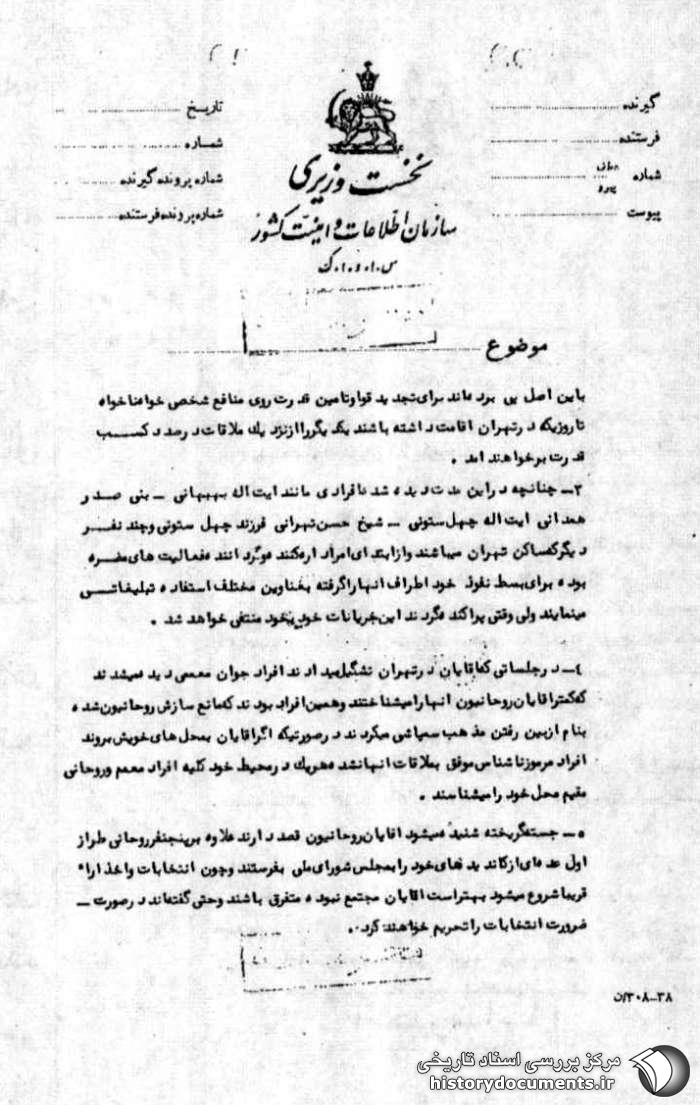 گیرنده
فرستنده
شماره
پیوست
تاریخ
شماره
شماره پرونده گیرنده
شماره پرونده فرستنده
نخست وزیری
سازمان اطلاعات و امنیت کشور
موضوع
باین اصل پی برده‌اند برای تجدید قوا و تامین قدرت روی منافع شخص خواه‌ناخواه
تا روزیکه در تهران اقامت داشته باشند یکدیگر را از نزدیک ملاقات در صدد کسب
قدرت بر خواهند آمد .
۳ـ چنانچه در این مدت دیده شد افرادی مانند ایت اله بهبهانی ـ بنی صدر
همدانی ایت اله چهل ستونی ـ شیخ حسن تهرانی فرزند چهل ستونی و چند نفر
دیگر که ساکن تهران میباشند و از ابتدای امر اداره کننده و گرداننده فعالیت های مضره
بوده برای بسط نفوذ خود اطراف انها را گرفته بعناوین مختلف استفاده تبلیغاتی
مینمایند ولی وقتی پراکنده گردند این جریانات خود بخود منتفی خواهد شد .
٤ـ در جلساتی که اقایان در تهران تشکیل میدادند افراد جوان معممی دیده میشدند
که کمتر اقایان روحانیون انها را میشناختند و همین افراد بودند که مانع سازش روحانیون شده
بنام از بین رفتن مذهب سمپاشی میکردند در صورتیکه اگر اقایان بمحل های خویش بروند
افراد مرموز ناشناس موفق بملاقات انها نشده و هریک در محیط خود کلیه افراد معمم و روحانی
مقیم محل خود را میشناسند .
٥ـ جسته گریخته شنیده میشود اقایان روحانیون قصد دارند علاوه بر پنج نفر روحانی طراز
اول عده‌ای از کاندیدهای خود را بمجلس شورای ملی بفرستند و چون انتخابات و اخذ اراء
قریبا شروع میشود بهتر است اقایان مجتمع نبوده متفرق باشند و حتی گفته‌اند در صورت ـ
ضرورت انتخابات را تحریم خواهند کرد .
۳۸ـ۳۰۸/ن
مرکز بررسی اسناد تاریخی
historydocuments.ir